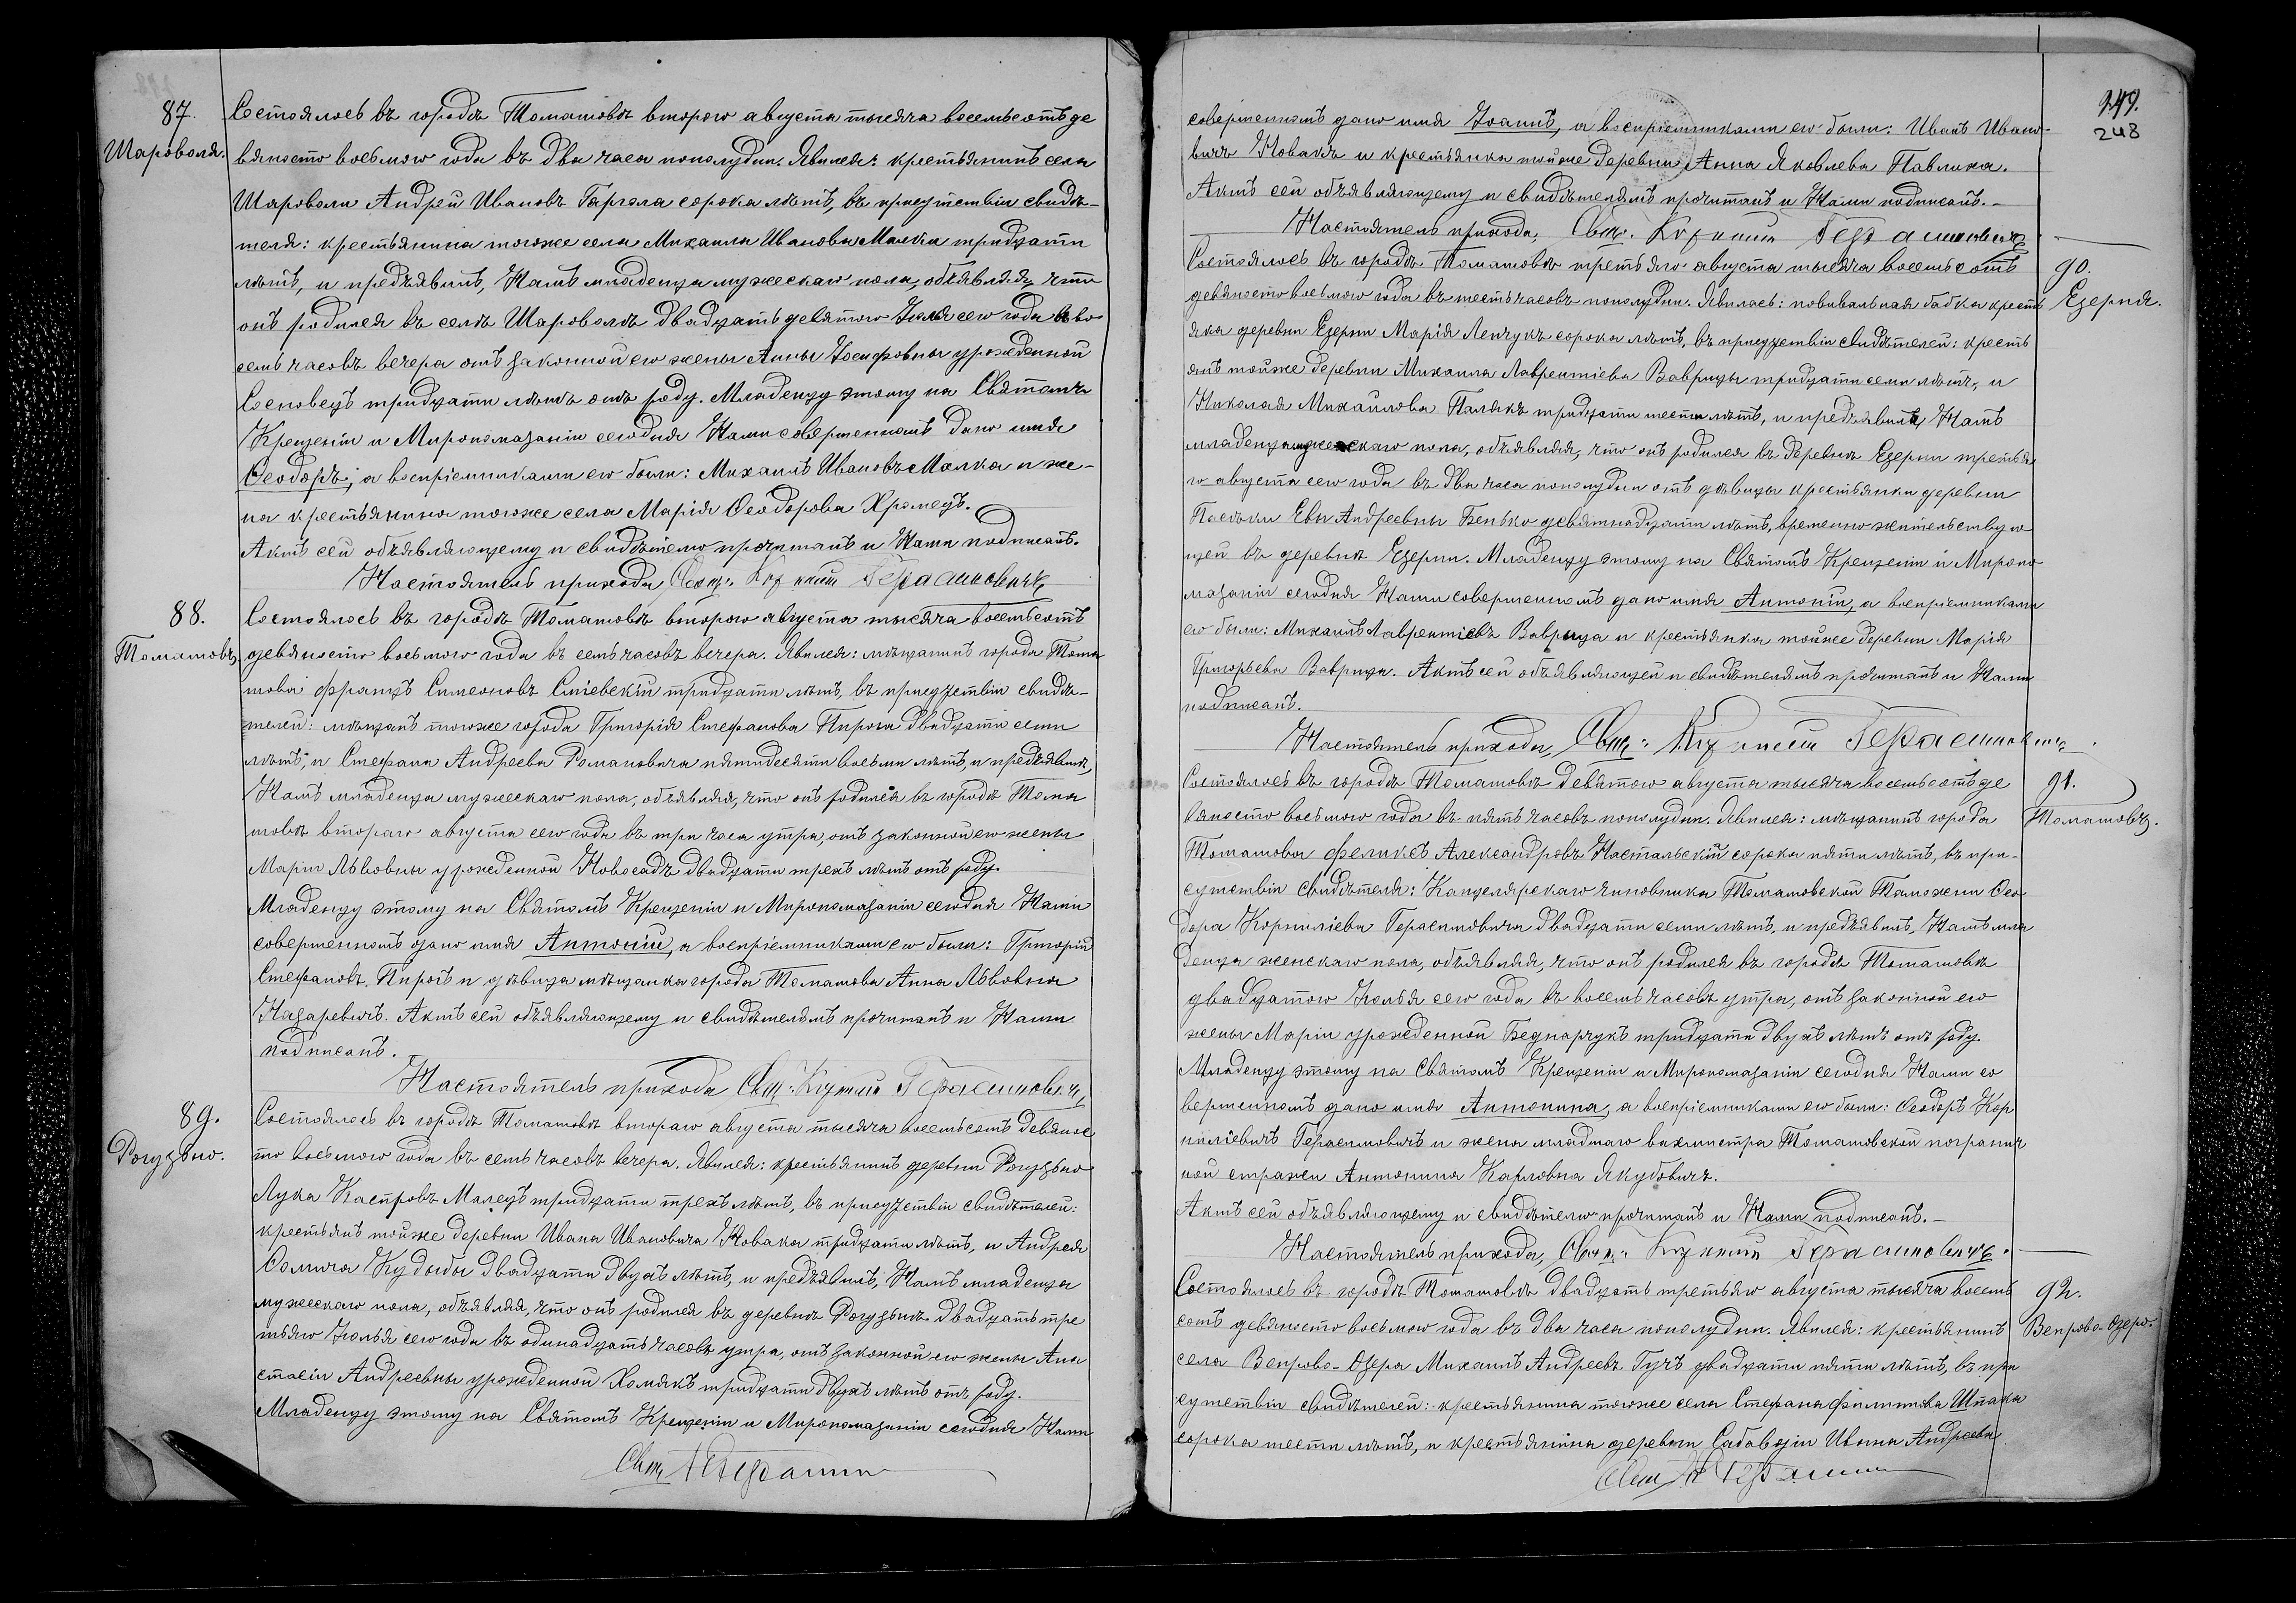 87.
Шароволя.
Состоялось въ городѣ Томашовѣ второго августа тысяча восемьсотъ де
вяносто восьмого года въ два часа пополудни. Явился: крестьянинъ села
Шароволи Андрей Ивановъ Гаргала сорока лѣтъ, въ присутствіи свидѣ-
теля: крестьянина тогоже села Михаила Иванова Малка тридцати
лѣтъ, и предъявилъ, Намъ младенца мужескаго пола, объявляя, что
онъ родился въ селѣ Шароволѣ двадцать девятого Іюля сего года въ во
семь часовъ вечера отъ законной его жены Анны Іосифовны урожденной
Сосновецъ тридцати лѣтъ отъ роду. Младенцу этому на Святомъ
Крещеніи и Миропомазаніи сегодня Нами совершенномъ дано имя
Ѳеодоръ, а воспріемниками его были: Михаилъ Ивановъ Малка и же-
на крестьянина тогоже села Марія Ѳеодорова Хромецъ.
Актъ сей объявляющему и свидѣтелю прочитанъ и Нами подписанъ.
Настоятель прихода Свящ. Корнилій Герасимовичъ
88.
Томашовъ.
Состоялось въ городѣ Томашовѣ второго августа тысяча восемьсотъ
девяносто восьмого года въ семь часовъ вечера. Явился: мѣщанинъ города Тома
шова Францъ Симеоновъ Сніевскій тридцати лѣтъ, въ присутствіи свидѣ-
телей: мѣщанъ тогоже города Григорія Стефанова Пирога двадцати семи
лѣтъ, и Стефана Андреева Романовича пятидесяти восьми лѣтъ, и предъявилъ,
Намъ младенца мужескаго пола, объявляя, что онъ родился въ городѣ Тома
шовѣ второго августа сего года въ три часа утра, отъ законной его жены
Маріи Львовны урожденной Новосадъ двадцати трехъ лѣтъ отъ роду.
Младенцу этому на Святомъ Крещеніи и Миропомазаніи сегодня Нами
совершенномъ дано имя Антоній, а воспріемниками его были: Григорій
Стефановъ Пирогъ и дѣвица мѣщанка города Томашова Анна Львовна
Назаревичъ. Актъ сей объявляющему и свидѣтелямъ прочитанъ и Нами
подписанъ.
Настоятель прихода Свящ. Корнилій Герасимовичъ
89.
Рогузьно.
Состоялось въ городѣ Томашовѣ второго августа тысяча восемьсотъ девянос
то восьмого года въ семь часовъ вечера. Явился: крестьянинъ деревни Рогузьно
Лука Каспровъ Малецъ тридцати трехъ лѣтъ, въ присутствіи свидѣтелей:
крестьянъ тойже деревни Ивана Ивановича Новака тридцати лѣтъ, и Андрея
Ѳомича Кудыбы двадцати двухъ лѣтъ, и предъявилъ, Намъ младенца
мужескаго пола, объявляя, что онъ родился въ деревнѣ Рогузьнѣ двадцать тре
тьяго Іюлья сего года въ одинадцать часовъ утра, отъ законной его жены Ана
стасіи Андреевны урожденной Хомякъ тридцати двухъ лѣтъ отъ роду.
Младенцу этому на Святомъ Крещеніи и Миропомазаніи сегодня Нами
Свящ. К Герасим
249.
248
совершенномъ дано имя Іоаннъ, а воспріемниками его были: Иванъ Ивано-
вичъ Новакъ и крестьянка тойже деревни Анна Яковлева Павлиха.
Актъ сей объявляющему и свидѣтелямъ прочитанъ и Нами подписанъ.-
Настоятель прихода, Свящ. Корнилій Герасимовичъ
90.
Езерня.
Состоялось въ городѣ Томашовѣ третьяго августа тысяча восемьсотъ
девяносто восьмого года въ шесть часовъ пополудни. Явилась: повивальная бабка кресть
янка деревни Езерни Марія Ленчукъ сорока лѣтъ, въ присутствіи свидѣтелей: кресть
янъ тойже деревни Михаила Лаврентіева Ваврицы тридцати семи лѣтъ, и
Николая Михайлова Палякъ тридцати шести лѣтъ, и предъявила Намъ
младенца мужескаго пола, объявляя, что онъ родился въ деревнѣ Езерни третья
го августа сего года въ два часа пополудни отъ дѣвицы крестьянки деревни
Пасѣки Евы Андреевны Бенько девятнадцати лѣтъ, временно жительствую
щей въ деревнѣ Езерни. Младенцу этому на Святомъ Крещеніи и Миропо
мазаніи сегодня Нами совершенномъ дано имя Антоній, а воспріемниками
его были: Михаилъ Лаврентіевъ Ваврица и крестьянка тойже деревни Марія
Григорьева Ваврица. Актъ сей объявляющей и свидѣтелямъ прочитанъ и Нами
подписанъ.
Настоятель прихода, Свящ. Корнилій Герасимовичъ
91.
Томашовъ.
Состоялось въ городѣ Томашовѣ девятого августа тысяча восемьсотъ де
вяносто восьмого года въ пять часовъ пополудни. Явился: мѣщанинъ города
Томашова Феликсъ Александровъ Настальскій сорока пяти лѣтъ, въ при-
сутствіи свидѣтеля: Канцелярскаго чиновника Томашовской Таможни Ѳео
дора Корниліева Герасимовича двадцати семи лѣтъ, и предъявилъ, Намъ мла
денца женскаго пола, объявляя, что онъ родился въ городѣ Томашовѣ
двадцатого Іюлья сего года въ восемь часовъ утра, отъ законной его
жены Маріи урожденной Беднарчукъ тридцати двухъ лѣтъ отъ роду.
Младенцу этому на Святомъ Крещеніи и Миропомазаніи сегодня Нами со
вершенномъ дано имя Антонина, а воспріемниками его были: Ѳеодоръ Кор
ниліевичъ Герасимовичъ и жена младшаго вахмистра Томашовской погранич
ной стражи Антонина Карловна Якубовичъ.
Актъ сей объявляющему и свидѣтелю прочитанъ и Нами подписанъ.-
Настоятель прихода, Свящ. Корнилій Герасимовичъ.
92.
Вепрово-Озеро.
Состоялось въ городѣ Томашовѣ двадцать третьяго августа тысяча восемь
сотъ девяносто восьмого года въ два часа пополудни. Явился: крестьянинъ
села Вепрово-Озера Михаилъ Андреевъ Гучъ двадцати пяти лѣтъ, въ при
сутствіи свидѣтелей: крестьянина тогоже села Стефана Филиппова Шпака
сорока шести лѣтъ, и крестьянина деревни Сабавдіи Ивана Андреева
Свящ. К Герасим